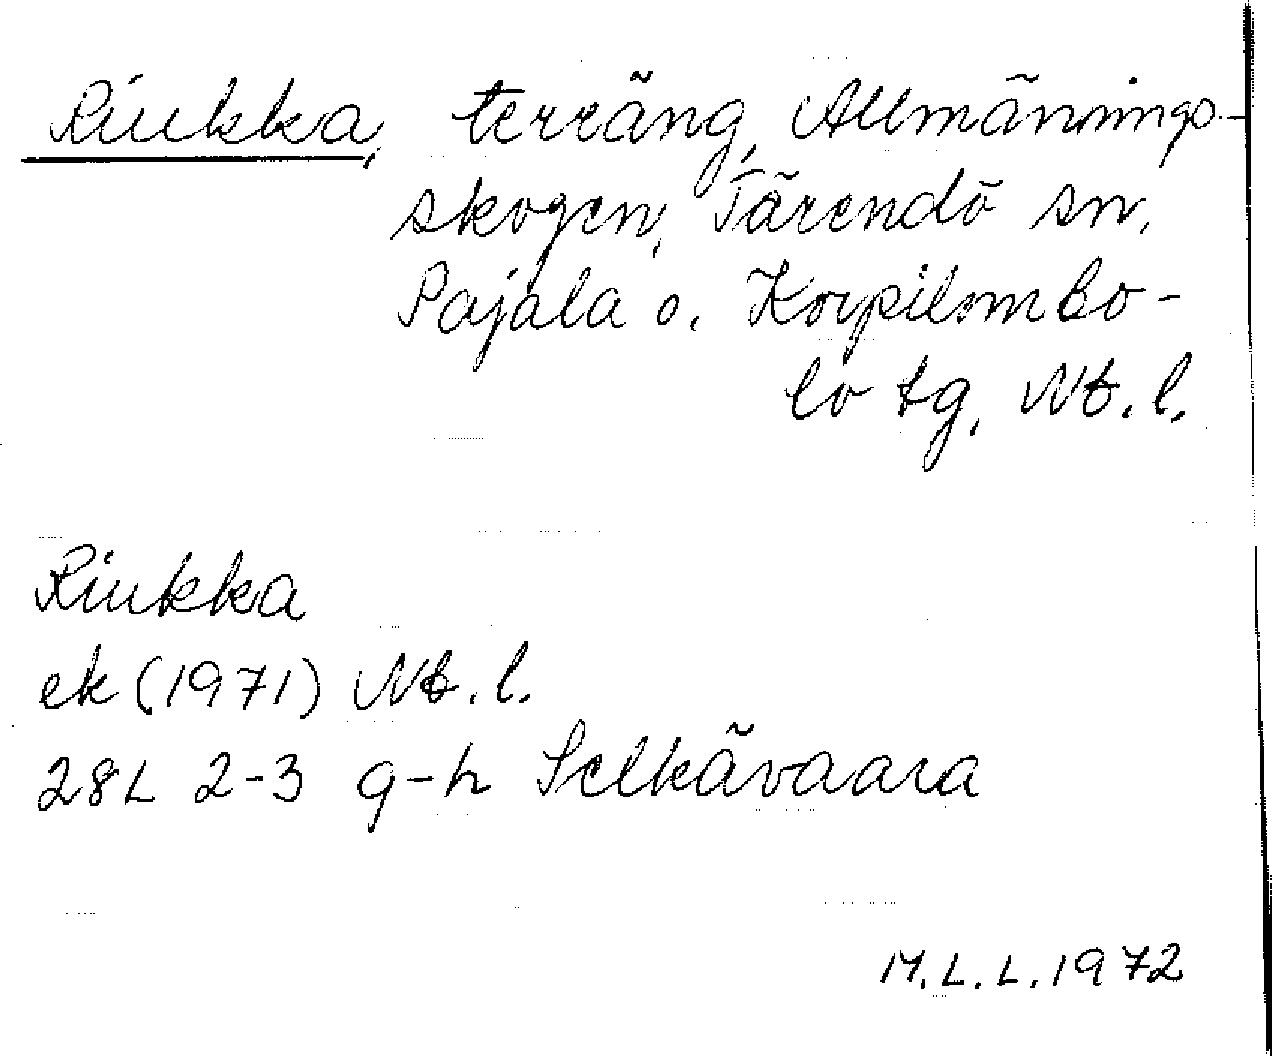 Riukka, terräng, Allmännings-
skogen, Tärendö sn,
Pajala o. Korpilombo-
lo tg, Nb. l.
Riukka
ek (1971) Nb. l.
28L 2-3 g-h Selkävaara
M.L.L. 1972